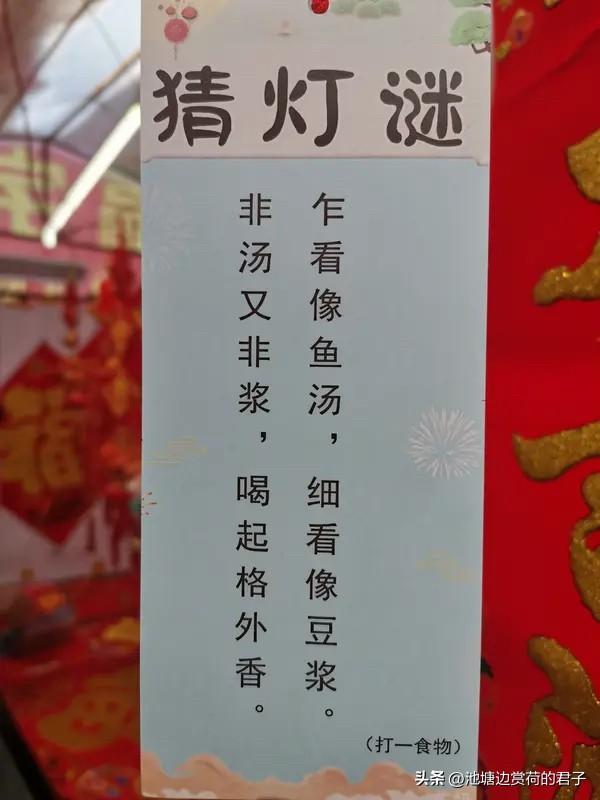 猜灯谜
乍看像鱼汤，细看像豆浆。
非汤又非浆，喝起格外香。
（打一食物）
头条 @池塘边赏荷的君子